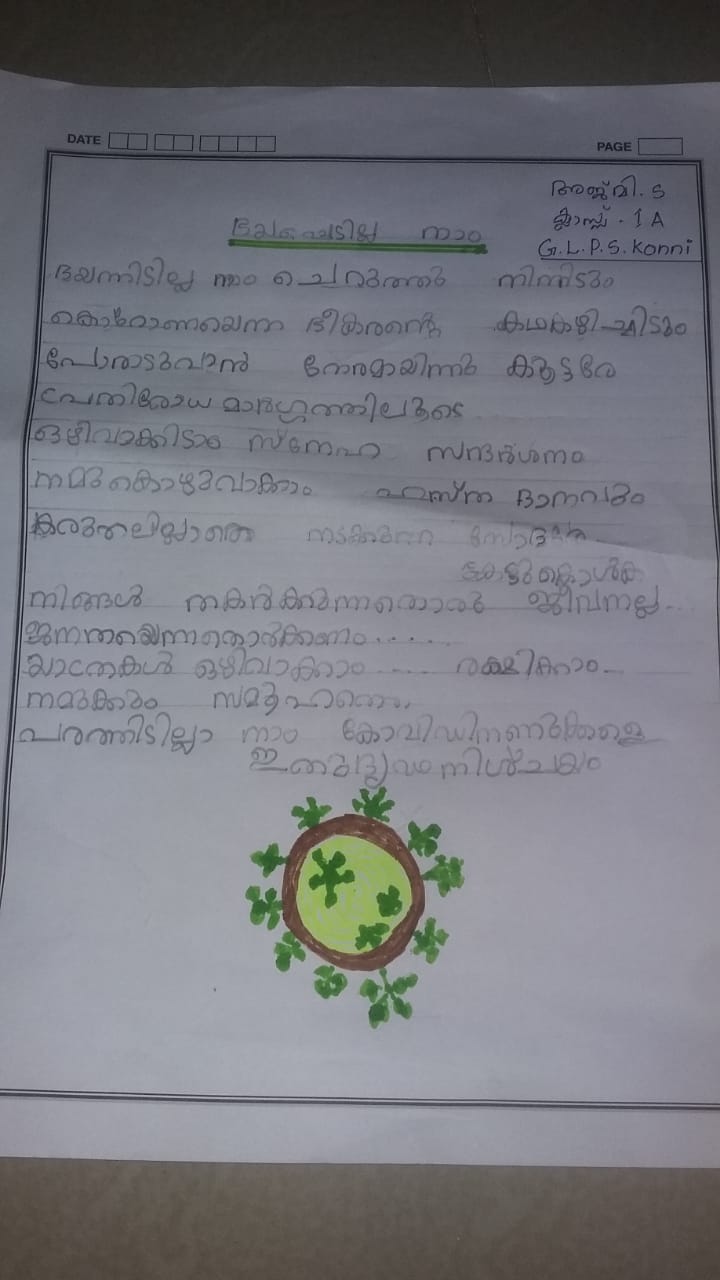 DATE
PAGE
അജ്‌വി. S
ക്ലാസ്സ് . 1 A
G.L.P.S. Konni
ഭയപ്പെടില്ല നാം
ഭയന്നിടില്ല നാം ചെറുത്തു നിന്നിടും
കൊറോണയെന്ന ഭീകരന്റെ കഥകഴിച്ചിടും
പോരാടുവാൻ നേരമായിന്നു കൂട്ടരേ
പ്രതിരോധ മാർഗ്ഗത്തിലൂടെ
ഒഴിവാക്കിടാം സ്നേഹ സന്ദർശനം
നമുക്കൊഴുവാക്കാം ഹസ്ത ദാനവും
കരുതലില്ലാതെ നടക്കുന്ന
കേട്ടുകൊൾക
നിങ്ങൾ തകർക്കുന്നതൊരു ജീവനല്ല...
ജനതയെന്നതോർക്കണം.....
യാത്രകൾ ഒഴിവാക്കാം.... രക്ഷിക്കാം...
നമുക്കും സമൂഹത്തെ..
പരത്തിടില്ലാ നാം കോവിഡിനണുക്കളെ
നിശ്ചയം